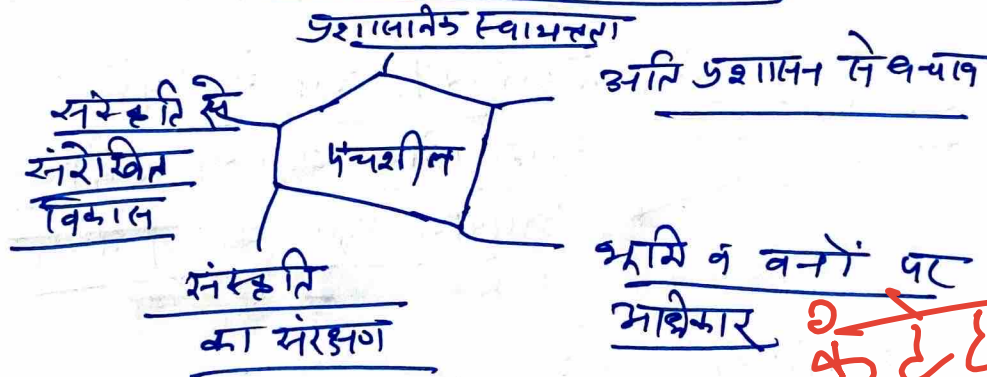 प्रशासनिक स्वायत्तता
अति प्रशासन से बचाव
संस्कृति से
संरेखित
विकास
पंचशील
संस्कृति
का संरक्षण
भूमि व वनों पर
अधिकार